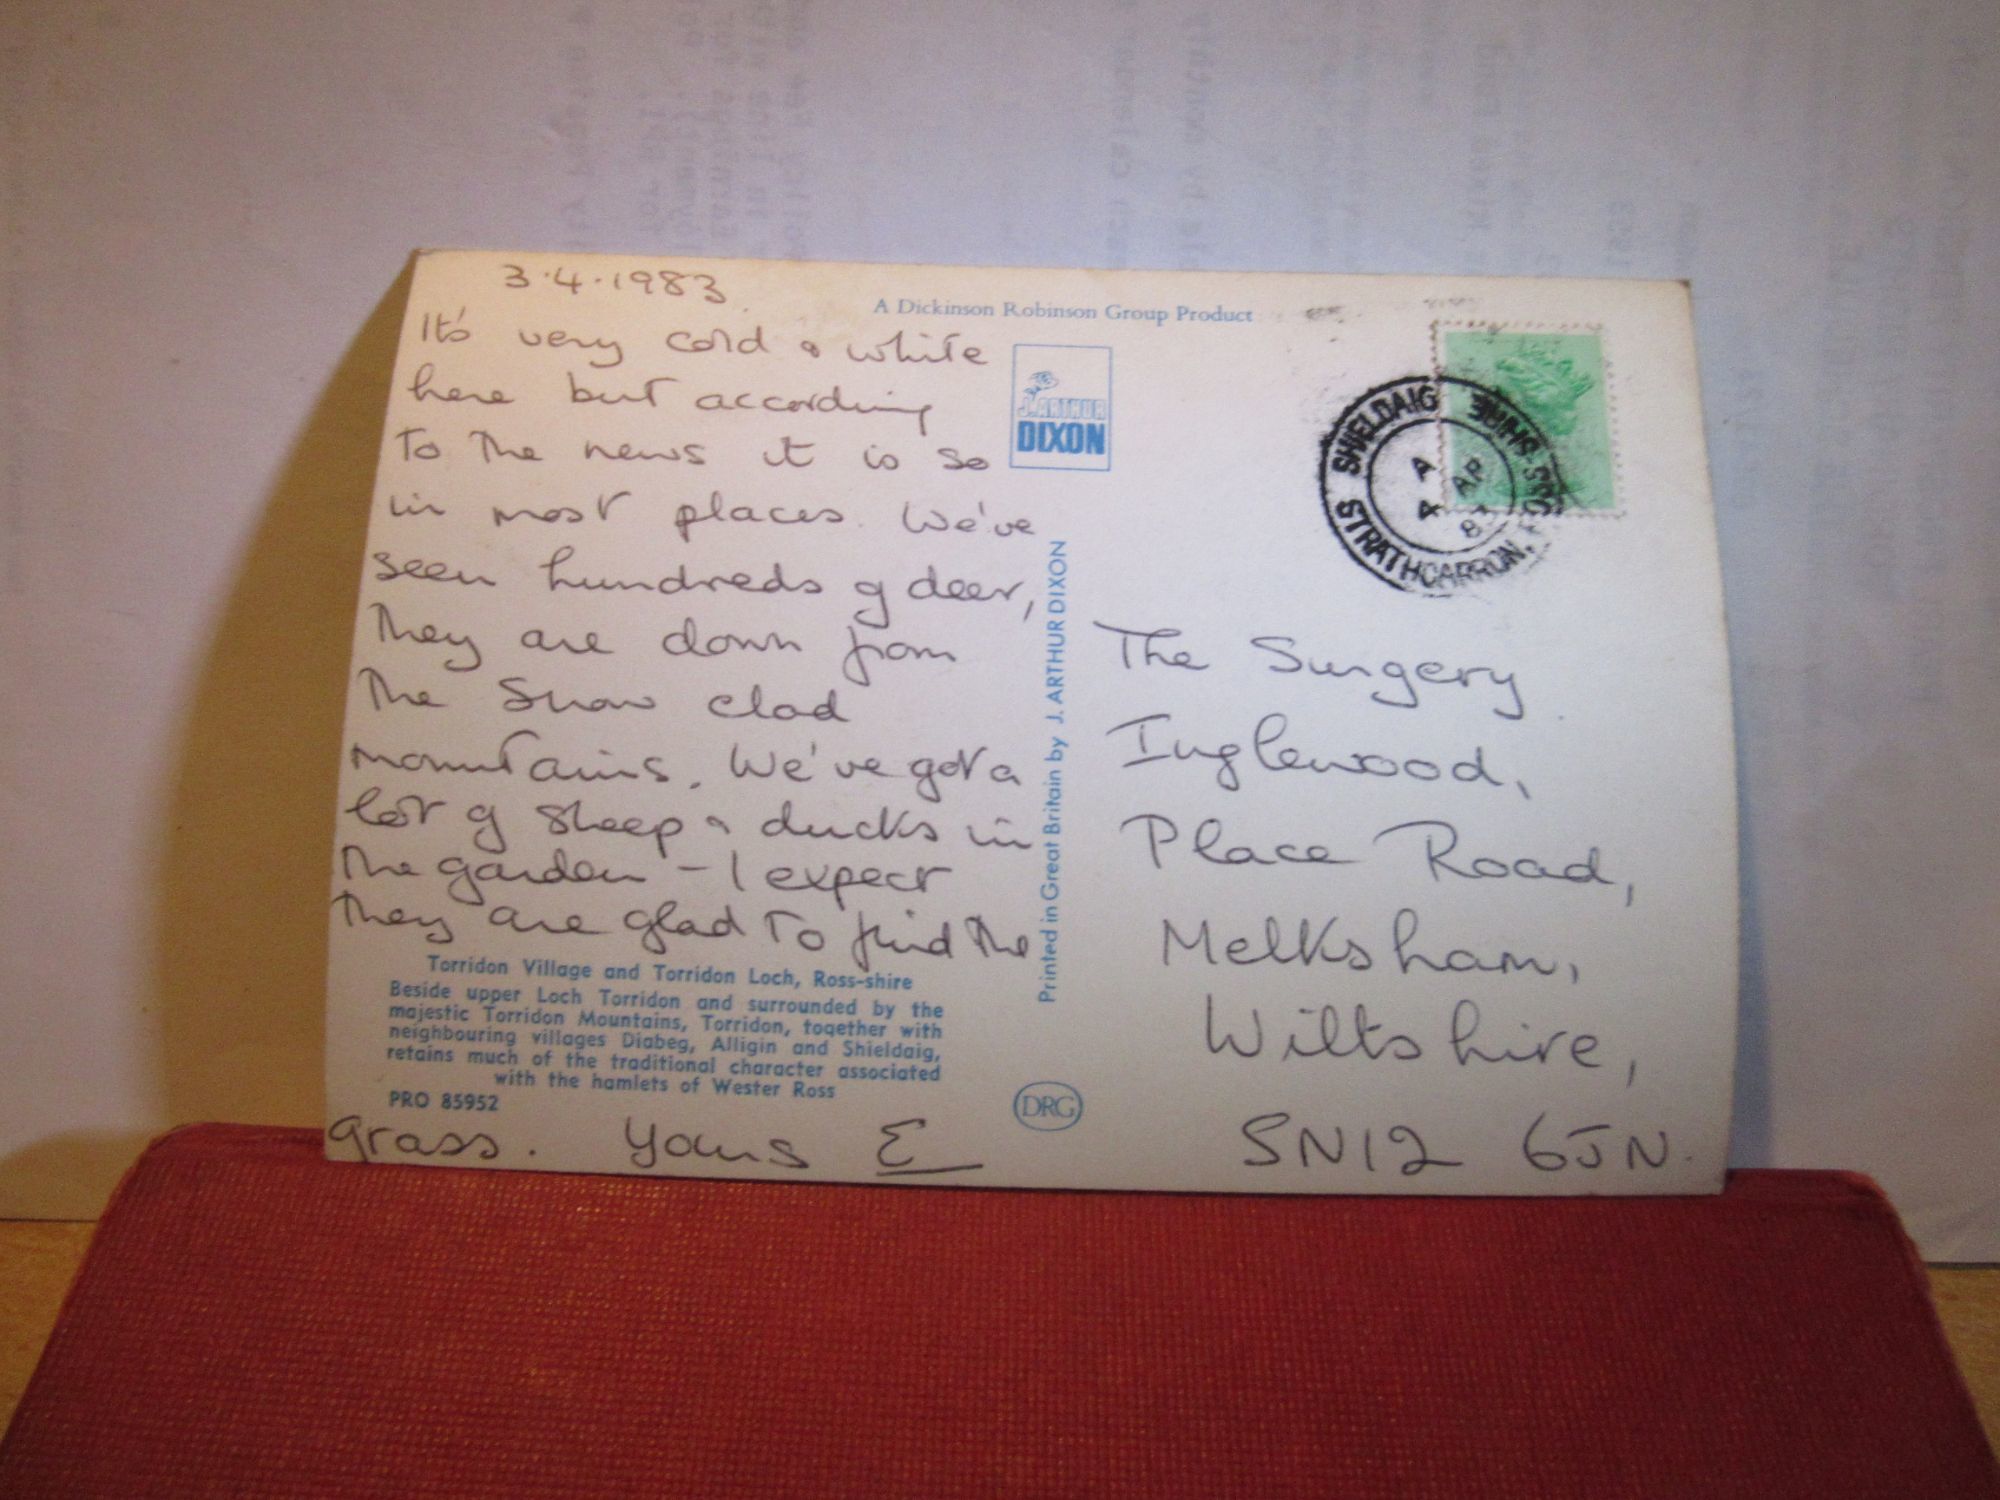 3.4.1983
It's very cold & white
here but according
to the news it is so
in most places. We've
seen hundreds of deer,
they are down from
the snow clad
mountains. We've got a
lot of sheep & ducks in
the garden – I expect
they are glad to find the
grass. Yours E
Torridon Village and Torridon Loch, Ross-shire
Beside upper Loch Torridon and surrounded by the
majestic Torridon Mountains, Torridon, together with
neighbouring villages Diabeg, Alligin and Shieldaig,
retains much of the traditional character associated
with the hamlets of Wester Ross
PRO 85952
A Dickinson Robinson Group Product
J. ARTHUR
DIXON
Printed in Great Britain by J. ARTHUR DIXON
DRG
SHIELDAIG
STRATHCARRON, ROSS-SHIRE
A
4 AP
83
The Surgery
Inglewood,
Place Road,
Melksham,
Wiltshire,
SN12 6JN.